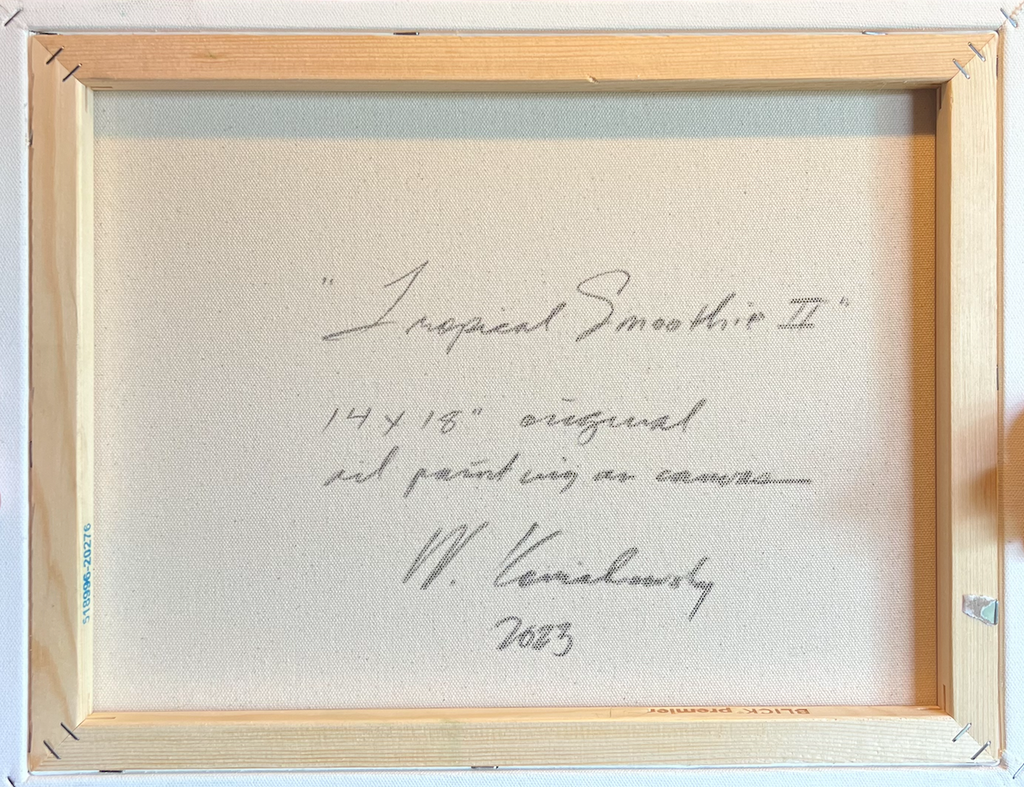 "Tropical Smoothie II"
14 x 18" original
oil painting on canvas
W.
2023
518996-20276
BLICK premier